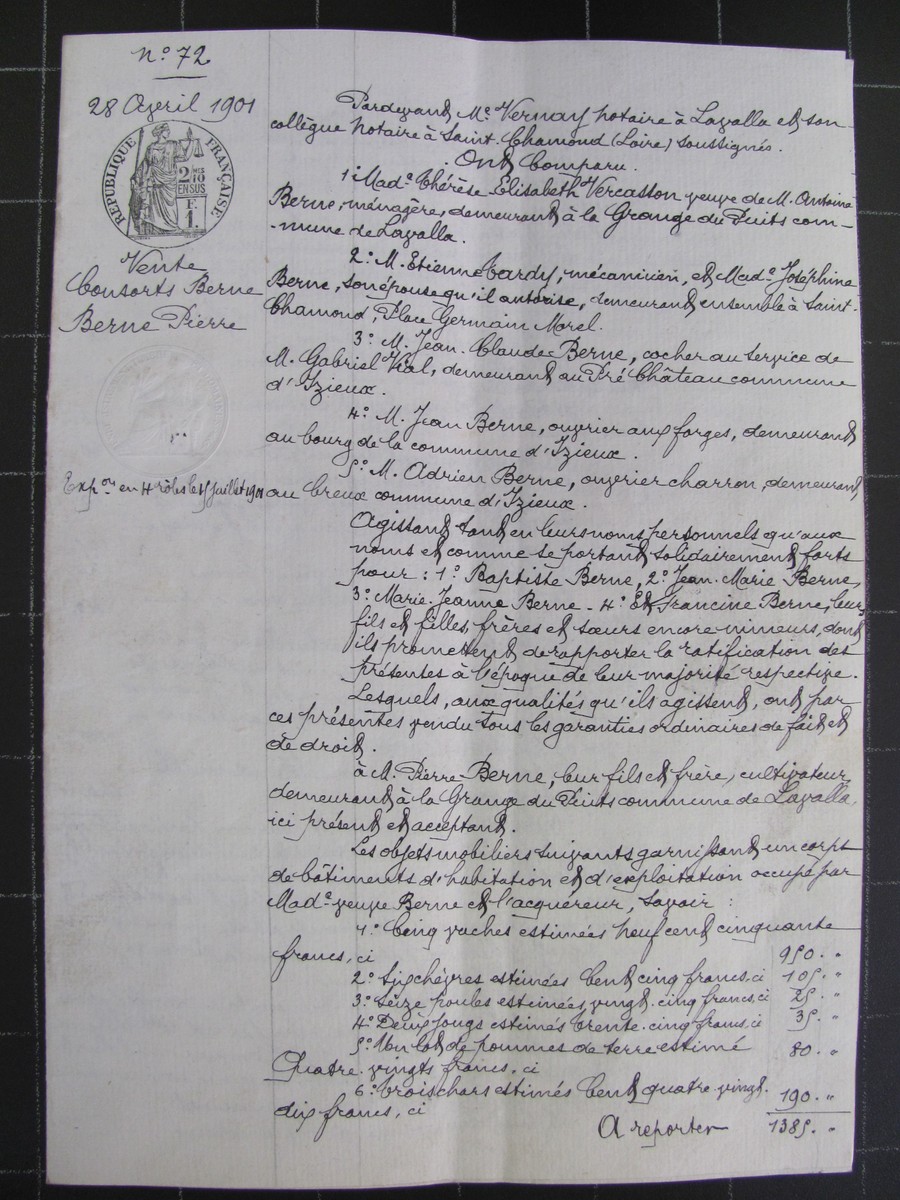 N° 72
28 Avril 1901
RÉPUBLIQUE FRANÇAISE
2/10
EN SUS
F.
1.
Vente
Consorts Berne
Berne Pierre
Exp.on en 4 rôles le 15 juillet 1901
Pardevant Me Vernay notaire à Lavalla et son
collègue notaire à Saint-Chamond (Loire) soussignés.
Ont Comparu.
1° Made Thérèse Elisabeth Vercasson veuve de M. Antoine
Berne, ménagère, demeurant à la Grange du Puits com-
-mune de Lavalla.
2° M. Etienne Tardy, mécanicien, et Made Joséphine
Berne, son épouse qu'il autorise, demeurant ensemble à Saint-
Chamond, Place Germain Morel.
3° M. Jean-Claude Berne, cocher au service de
M. Gabriel Vial, demeurant au Pré Château commune
d'Izieux.
4° M. Jean Berne, ouvrier aux forges, demeurant
au bourg de la commune d'Izieux.
5° M. Adrien Berne, ouvrier charron, demeurant
au Creux commune d'Izieux.
Agissant tant en leurs noms personnels qu'aux
noms et comme se portant solidairement forts
pour : 1° Baptiste Berne, 2° Jean-Marie Berne,
3° Marie-Jeanne Berne - 4° Et Francine Berne, leur
fils et filles, frères et sœurs encore mineurs, dont
ils promettent de rapporter la ratification des
présentes à l'époque de leur majorité respective.
Lesquels, aux qualités qu'ils agissent, ont par
ces présentes vendu sous les garanties ordinaires de fait et
de droit.
à M. Pierre Berne, leur fils et frère, cultivateur,
demeurant à la Grange du Puits commune de Lavalla,
ici présent et acceptant.
Les objets mobiliers suivants garnissant un corps
de bâtiments d'habitation et d'exploitation occupé par
Made veuve Berne et l'acquéreur, savoir :
1° Cinq vaches estimées neuf cent cinquante
francs, ci 950. "
2° Six chèvres estimées Cent cinq francs, ci 105. "
3° Seize poules estimées vingt-cinq francs, ci 25. "
4° Deux jougs estimés trente-cinq francs, ci 35. "
5° Un lot de pommes de terre estimé
Quatre-vingts francs, ci 80. "
6° trois chars estimés Cent quatre-vingt-
dix francs, ci 190. "
A reporter 1385. "